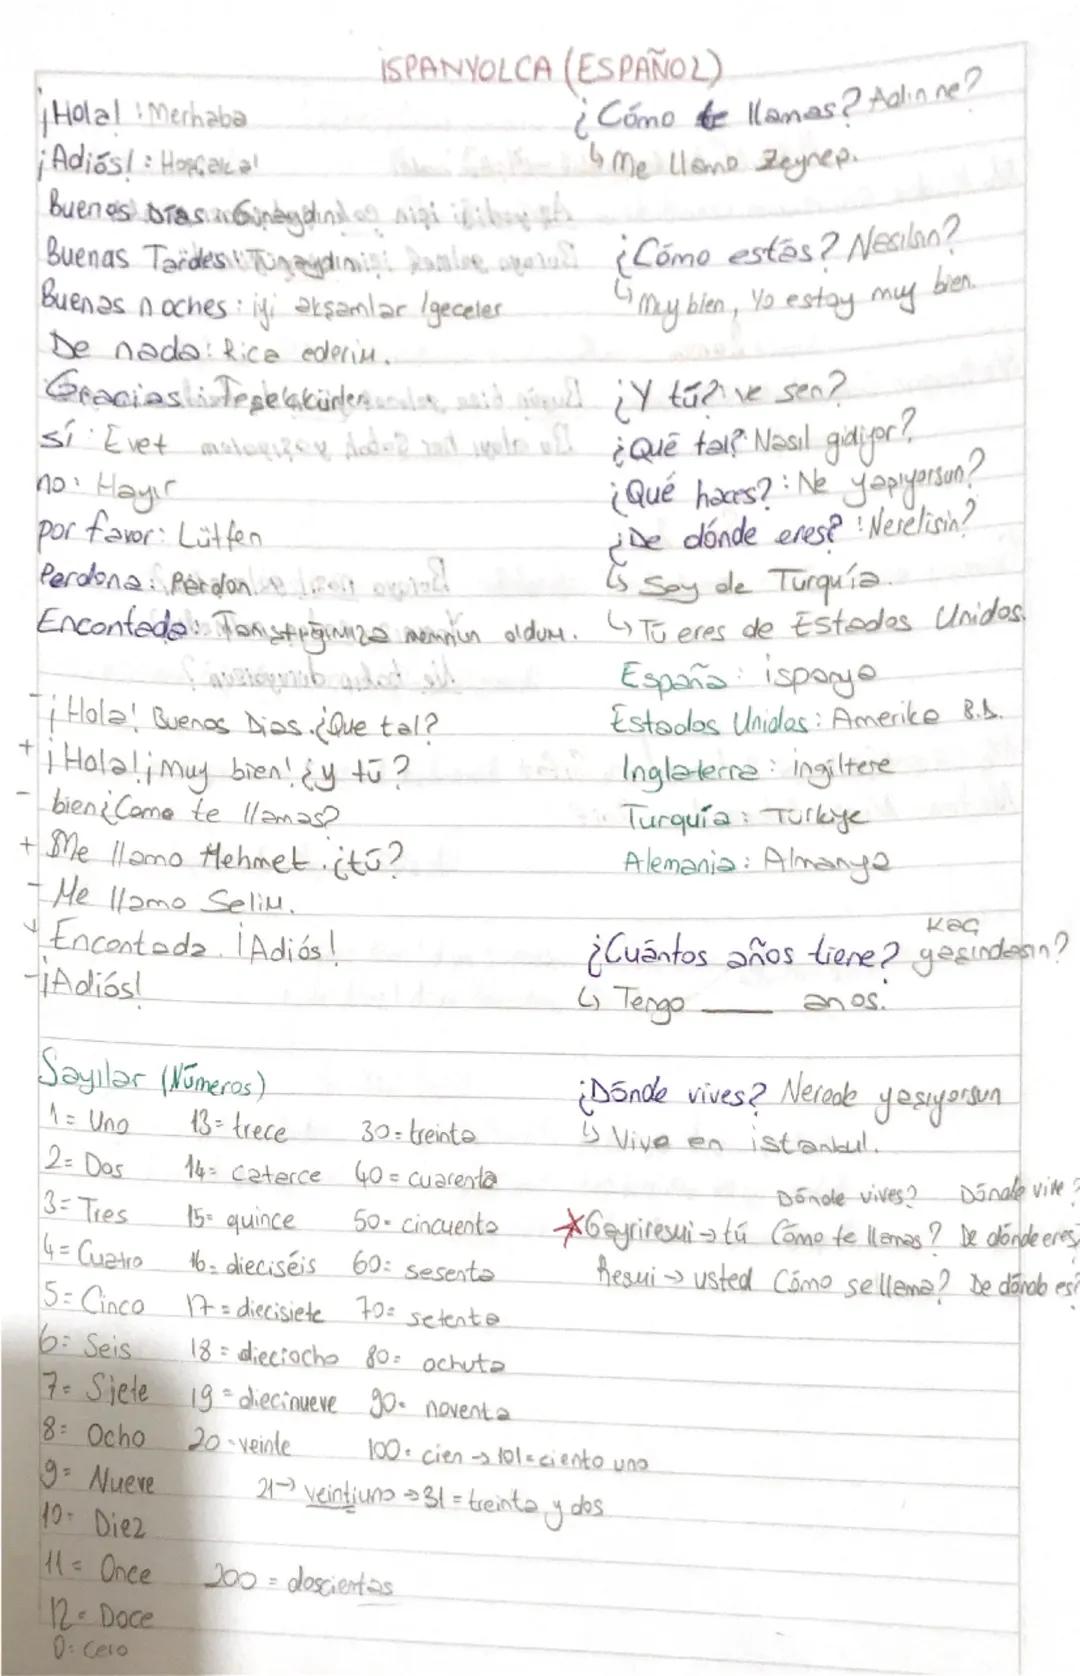 İSPANYOLCA (ESPAÑOL)
¡Hola! : Merhaba
¡Adiós! : Hoşçakal
Buenos Días : Günaydın
Buenas Tardes : Tünaydın
Buenas noches : iyi akşamlar /geceler
De nada : Rica ederim.
Gracias : Teşekkürler
sí : Evet
no : Hayır
por favor : Lütfen
Perdona : Pardon
Encantada : Tanıştığımıza memnun oldum.
- ¡Hola! Buenos Dias. ¿Que tal?
+ ¡Hola! ¡Muy bien! ¿y tú?
- bien ¿Como te llamas?
+ Me llamo Mehmet. ¿tú?
- Me llamo Selim.
+ Encantada. ¡Adiós!
- ¡Adiós!
¿Cómo te llamas? Adın ne?
↳ Me llamo Zeynep.
¿Cómo estás? Nasılsın?
↳ Muy bien, Yo estoy muy bien.
¿Y tú? : ve sen?
¿Qué tal? : Nasıl gidiyor?
¿Qué haces? : Ne yapıyorsun?
¿De dónde eres? : Nerelisin?
↳ Soy de Turquía.
↳ Tú eres de Estados Unidos.
España : ispanya
Estados Unidos : Amerika B.D.
Inglaterra : ingiltere
Turquía : Türkiye
Alemania : Almanya
¿Cuántos años tiene? Kaç yaşındasın?
↳ Tengo ____ anos.
¿Dónde vives? Nerede yaşıyorsun
↳ Vivo en istanbul.
Dónde vives? Dónde vive?
*Gayriresmi → tú Cómo te llamas? De dónde eres?
Resmi → usted Cómo se llama? De dónde es?
Sayılar (Números)
1 = Uno 13 = trece 30 = treinta
2 = Dos 14 = caterce 40 = cuarenta
3 = Tres 15 = quince 50 = cincuenta
4 = Cuatro 16 = dieciséis 60 = sesenta
5 = Cinco 17 = diecisiete 70 = setenta
6 = Seis 18 = dieciocho 80 = ochuta
7 = Siete 19 = diecinueve 90 = noventa
8 = Ocho 20 = veinte 100 = cien → 101 = ciento uno
9 = Nueve 21 → veintiuno → 31 = treinta y dos
10 = Diez
11 = Once 200 = doscientas
12 = Doce
0 = Cero